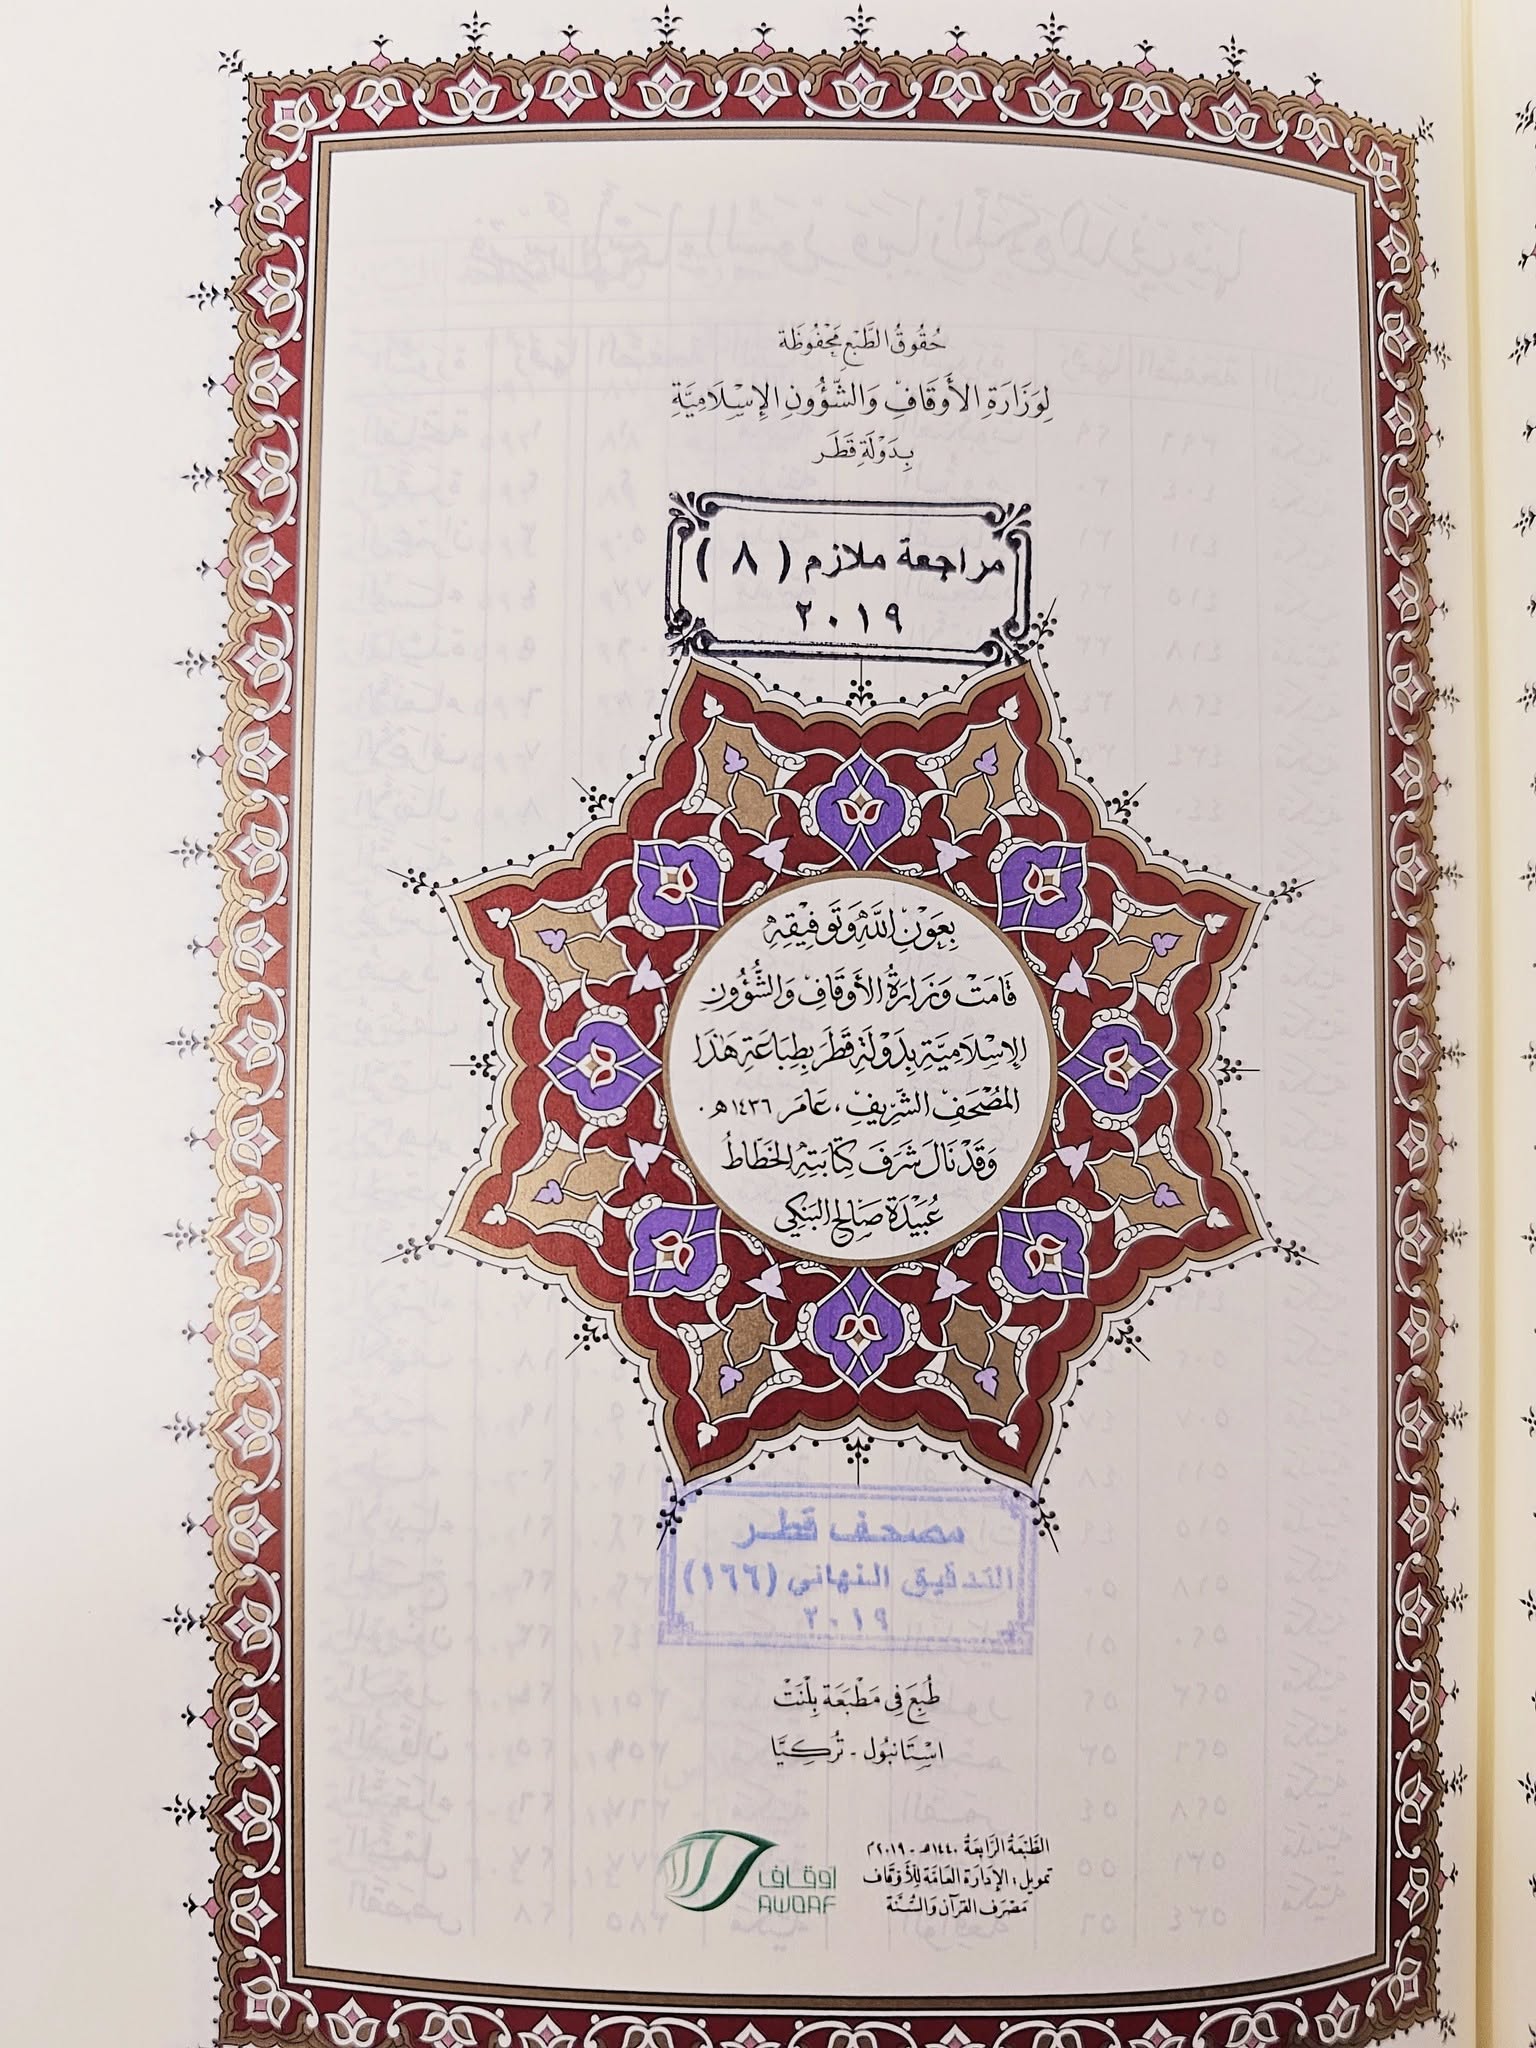 حُقُوقُ الطَّبْعِ مَحْفُوظَة
لِوَزَارَةِ الأَوْقَافِ وَالشُّؤُونِ الإِسْلَامِيَّةِ
بِدَوْلَةِ قَطَرَ
مراجعة ملازم ( ٨ )
٢٠١٩
بِعَوْنِ اللَّهِ وَتَوفِيْقِهِ
قَامَتْ وَزَارَةُ الأَوقَافِ وَالشُّؤُونِ
الإِسْلَامِيَّةِ بِدَوْلَةِ قَطَرَ بِطِبَاعَةِ هَذَا
المُصْحَفِ الشَّرِيفِ، عَامَ ١٤٣٦هـ.
وَقَدْ نَالَ شَرَفَ كِتَابَتِهِ الخَطَّاطُ
عُبَيْدَة صَالِح البَنْكِي
مصحف قطر
التدقيق النهائي (١٦٦)
٢٠١٩
طُبِعَ فِي مَطْبَعَة بِلْنَتْ
اسْتَانبُول - تُرْكِيَّا
الطَّبْعَةُ الرَّابِعَةُ ١٤٤٠هـ - ٢٠١٩م
تمويل: الإِدَارَة العَامَّة لِلأَوْقَاف
مَصْرَف القُرآن وَالسُّنَّة
أوقاف
AWQAF